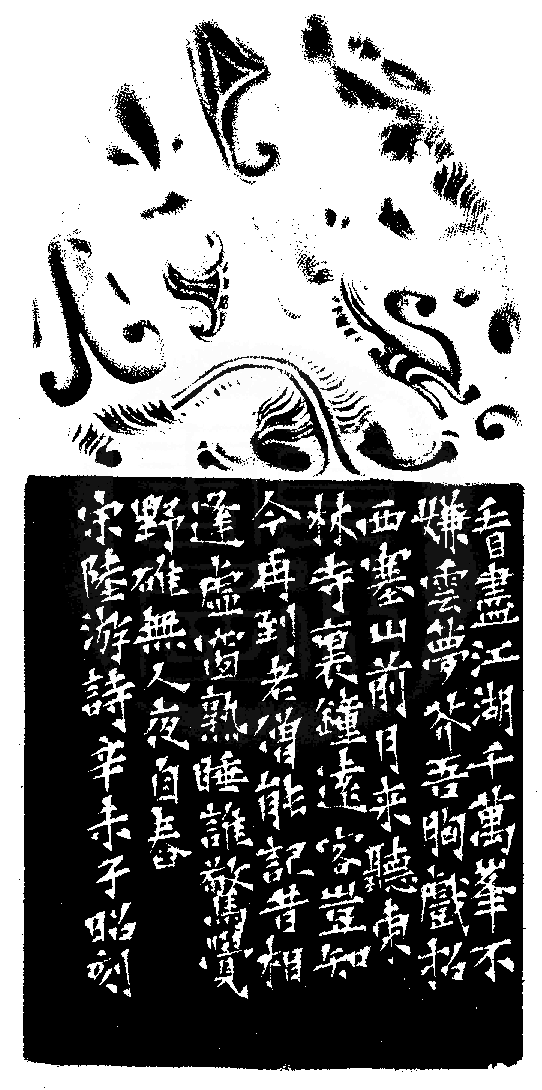 看盡江湖千萬峯不
嫌雲夢芥吾胸戲招
西塞山前月來聽東
林寺裏鐘遠客豈知
今再到老僧能記昔相
逢虛窗熟睡誰驚覺
野碓無人夜自舂
宋陸游詩辛未子昭刻